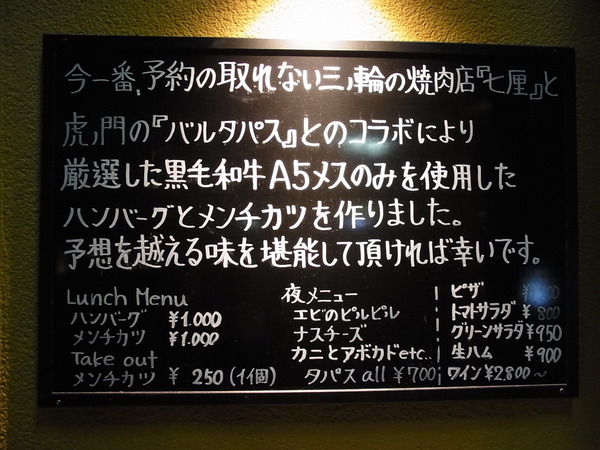 今一番、予約の取れない三ノ輪の焼肉店『七厘』と
虎ノ門の『バルタパス』とのコラボにより
厳選した黒毛和牛A5メスのみを使用した
ハンバーグとメンチカツを作りました。
予想を越える味を堪能して頂ければ幸いです。
Lunch Menu
ハンバーグ ¥1.000
メンチカツ ¥1.000
Take out
メンチカツ ¥ 250(1個)
夜メニュー
エビのピルピル
ナスチーズ
カニとアボカドetc..
タパスall ¥700
ピザ
トマトサラダ ¥800
グリーンサラダ¥950
生ハム ¥900
ワイン¥2.800〜